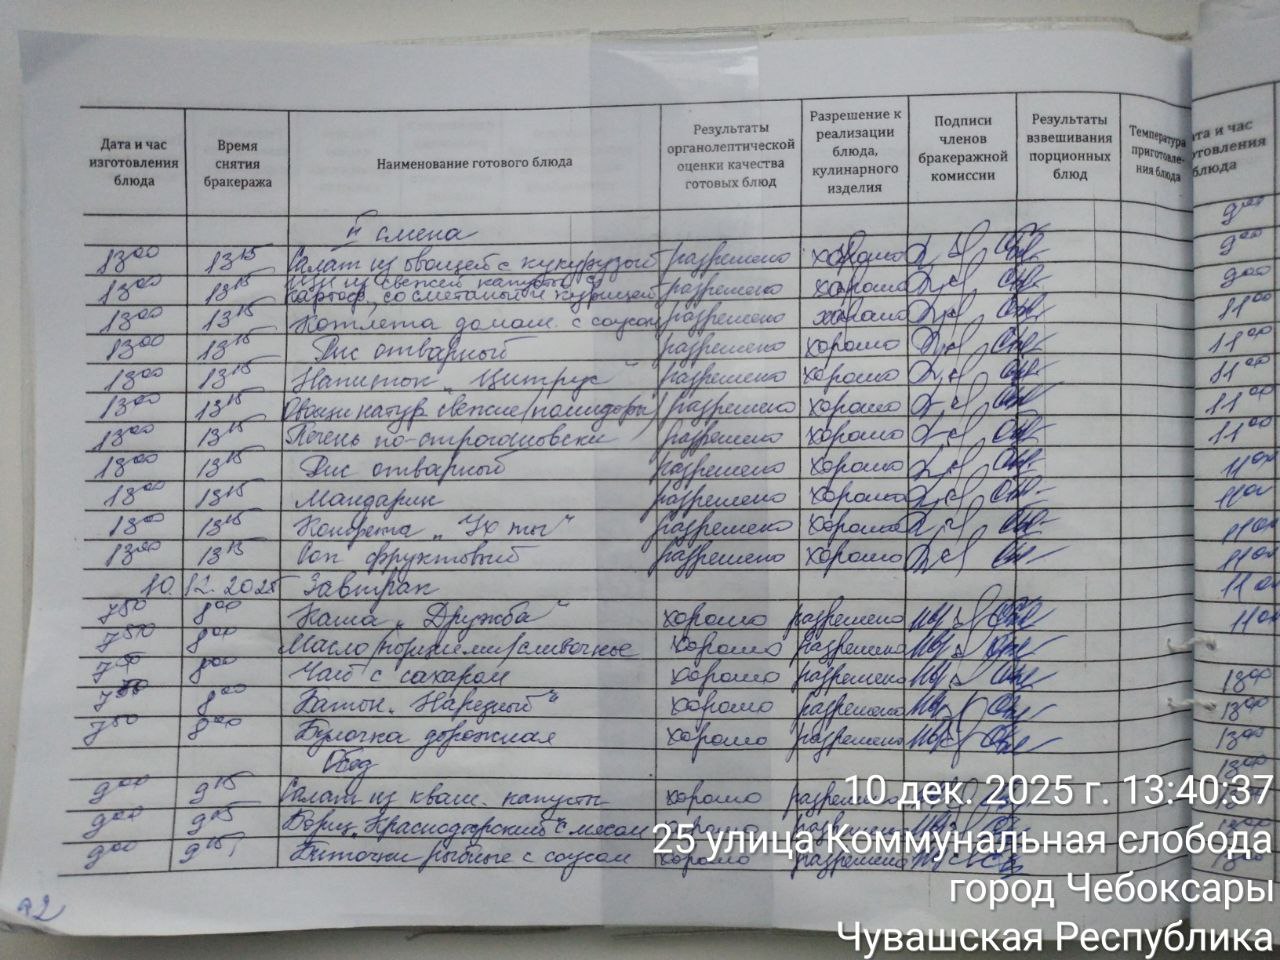 Дата и час изготовления блюда
Время снятия бракеража
Наименование готового блюда
Результаты органолептической оценки качества готовых блюд
Разрешение к реализации блюда, кулинарного изделия
Подписи членов бракеражной комиссии
Результаты взвешивания порционных блюд
Температура приготовления блюда
II смена
13 00 13 15 Салат из овощей с кукурузой разрешено хорошо
13 00 13 15 Щи из свежей капусты с картоф., со сметаной и курицей разрешено хорошо
13 00 13 15 Котлета домаш. с соусом разрешено хорошо
13 00 13 15 Рис отварной разрешено хорошо
13 00 13 15 Напиток „Цитрус“ разрешено хорошо
13 00 13 15 Овощи натур. свежие (помидоры) разрешено хорошо
13 00 13 15 Печень по-строгановски разрешено хорошо
13 00 13 15 Рис отварной разрешено хорошо
13 00 13 15 Мандарин разрешено хорошо
13 00 13 15 Конфета „Ух ты“ разрешено хорошо
13 00 13 15 Сок фруктовый разрешено хорошо
10.12.2025 Завтрак
7 50 8 00 Каша „Дружба“ хорошо разрешено
7 50 8 00 Масло (порциями) сливочное хорошо разрешено
7 50 8 00 Чай с сахаром хорошо разрешено
7 50 8 00 Батон „Нарезной“ хорошо разрешено
7 50 8 00 Булочка дорожная хорошо разрешено
Обед
9 00 9 15 Салат из кваш. капусты хорошо разрешено
9 00 9 15 Борщ „Краснодарский“ с мясом хорошо разрешено
9 00 9 15 Биточки рыбные с соусом хорошо разрешено
92
10 дек. 2025 г. 13:40:37
25 улица Коммунальная слобода
город Чебоксары
Чувашская Республика